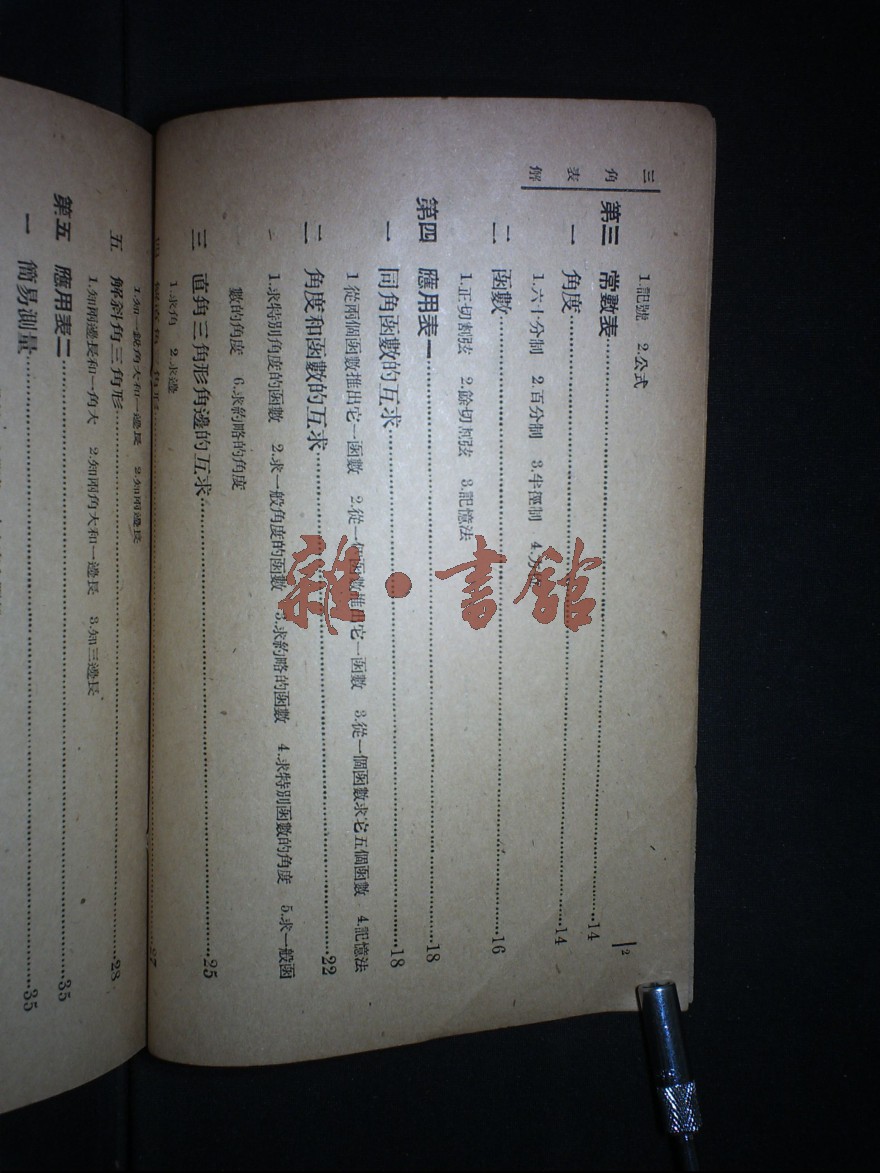 三角表解
2
1.記號 2.公式
第三 常數表……14
一 角度……14
1.六十分制 2.百分制 3.半徑制 4.
二 函數……16
1.正切割弦 2.餘切割弦 3.記憶法
第四 應用表一……18
一 同角函數的互求……18
1.從兩個函數推出它一函數 2.從一個函數推出它一函數 3.從一個函數求它五個函數 4.記憶法
二 角度和函數的互求……22
1.求特別角度的函數 2.求一般角度的函數 3.求約略的函數 4.求特別函數的角度 5.求一般函
數的角度 6.求約略的角度
三 直角三角形角邊的互求……25
1.求角 2.求邊
27
1.知一銳角大和一邊長 2.知兩邊長
五 解斜角三角形……28
1.知兩邊長和一角大 2.知兩角大和一邊長 3.知三邊長
第五 應用表二……35
一 簡易測量……35
雜·書館